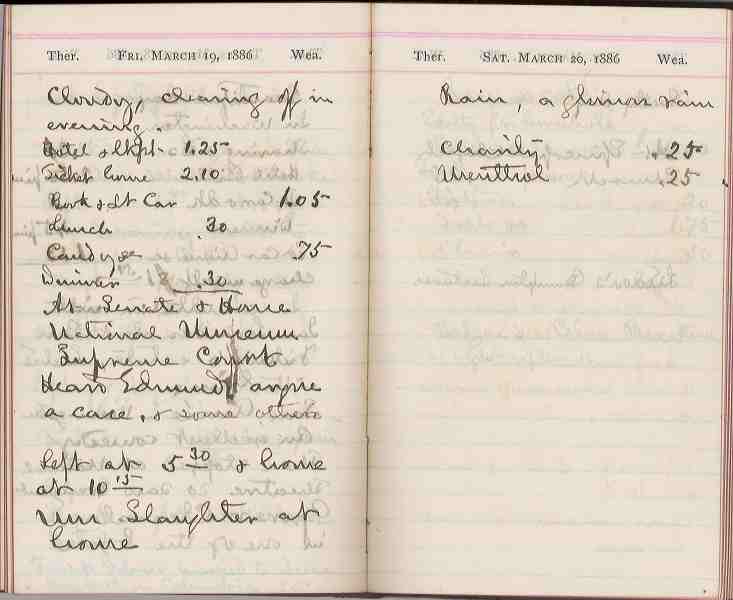 Ther. Fri. March 19, 1886 Wea.
Cloudy, clearing off in
evening.
Hotel & Bkfst 1.25
Ticket home 2.10
Book & St Car 1.05
Lunch .30
Candy &c .75
Dinner .30
At Senate & House
National Museum
Supreme Court
Heard Edmunds argue
a case, & some others
Left at 5 30 & home
at 10 15
Slaughter at
home
Ther. Sat. March 20, 1886 Wea.
Rain, a glorious rain
Charity .25
Menthol .25